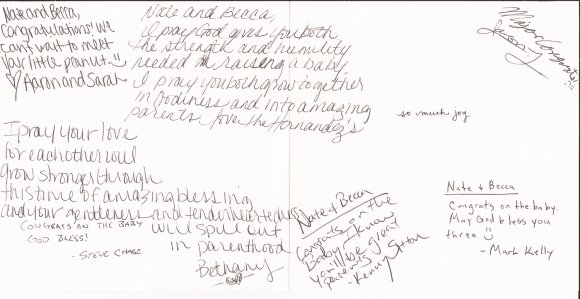 Nate and Becca,
Congratulations! We
can't wait to meet
your little peanut. :)
♡ Aaron and Sarah
Nate and Becca,
I pray God gives you both
the strength and humility
needed in raising a baby
I pray you both grow together
in Godliness and into amazing
parents. Love the Hernandez's
Major Congrats!
so much joy
I pray your love
for each other will
grow stronger through
this time of amazing blessing
and your gentleness and tenderheartedness
will spill out
in parenthood
Bethany
Congrats on the baby
God bless!
- Steve Chase
Nate + Becca
Congrats on the
Baby. I know
you'll be great
parents
- Kenny
Nate + Becca
Congrats on the baby.
May God bless you
three :)
- Mark Kelly